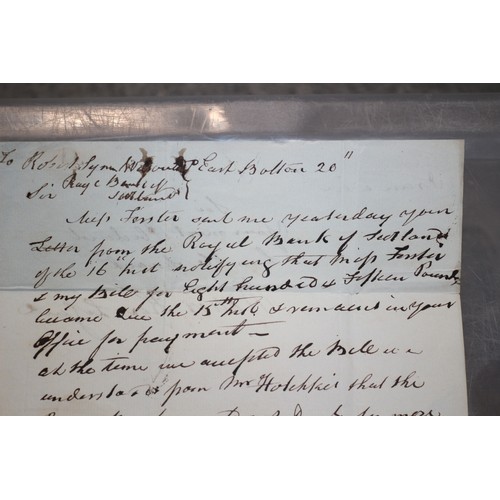 To Robt Syme East Bolton 20"
Royl Bank of
Sir Scotland
Miss Forster sent me yesterday your
Letter from the Royal Bank of Scotland
of the 16" Inst notifying that Miss Forster
& my Bill for Eight hundred & Fifteen Pounds
became due the 15th Inst & remains in your
Office for payment —
at the time we accepted the Bill we
understood from Mr Hotchkis that the
for more